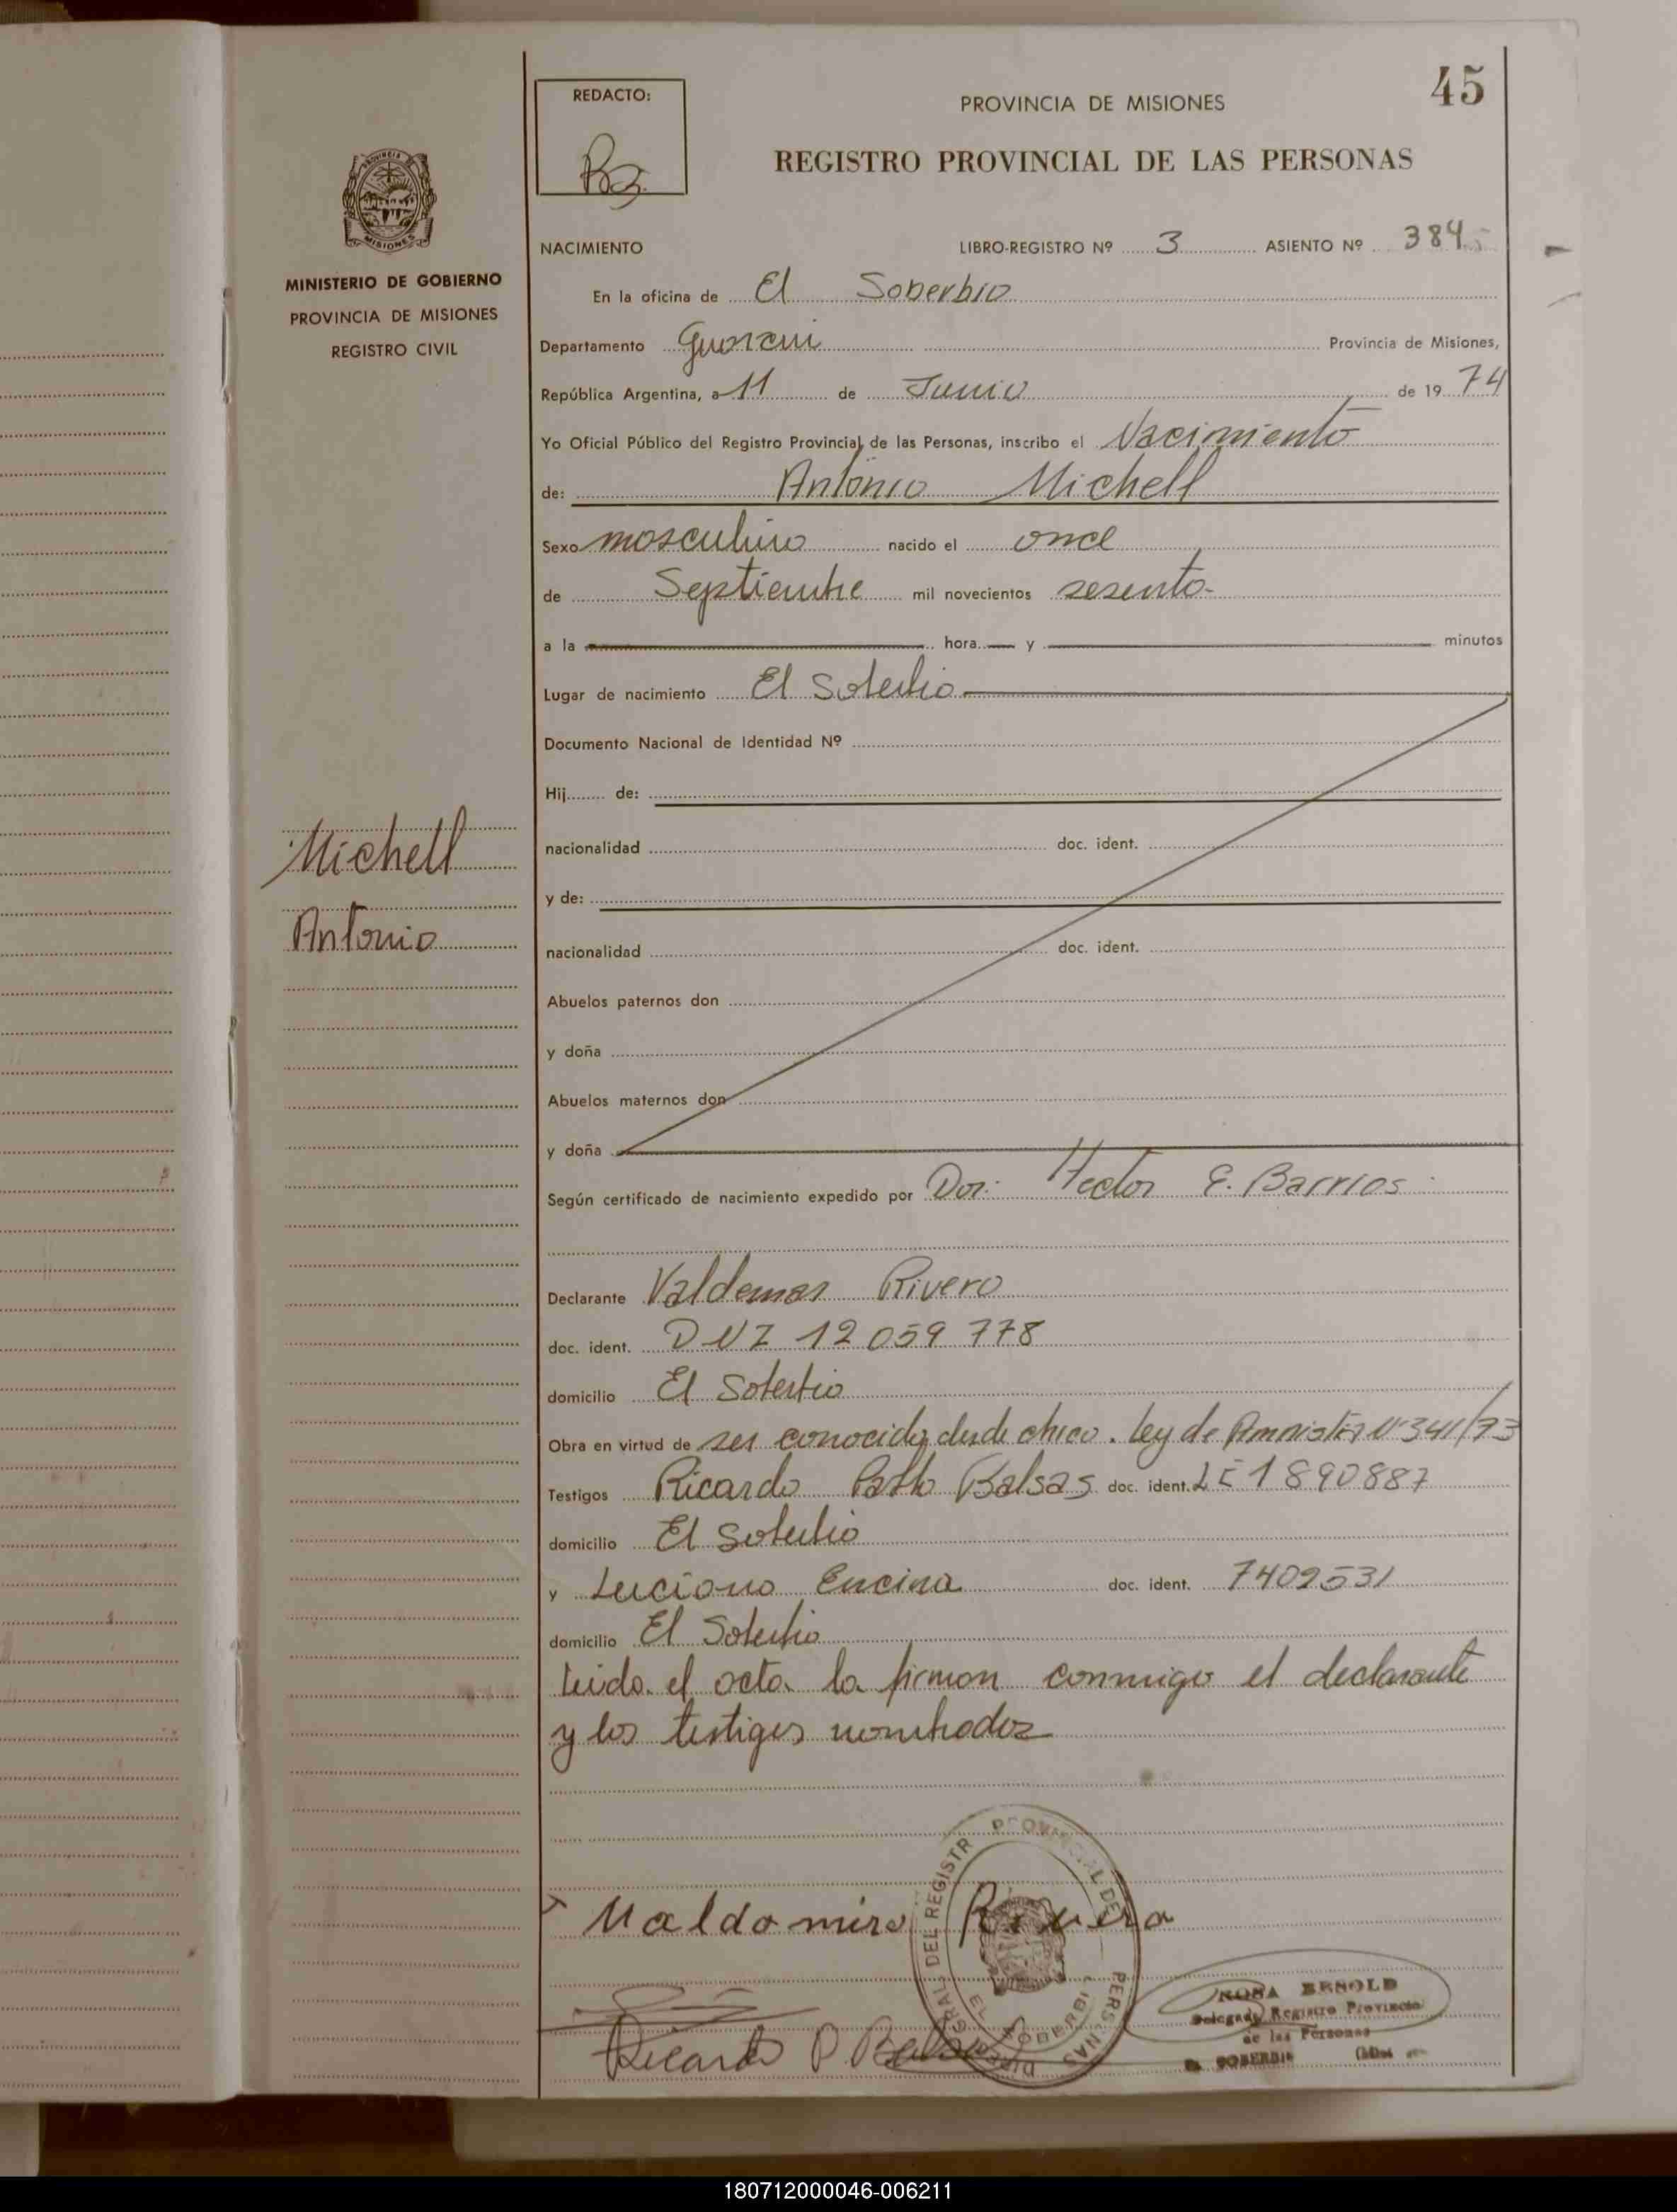 45
REDACTO:
PROVINCIA DE MISIONES
REGISTRO PROVINCIAL DE LAS PERSONAS
PROVINCIA DE
MISIONES
MINISTERIO DE GOBIERNO
PROVINCIA DE MISIONES
REGISTRO CIVIL
NACIMIENTO LIBRO-REGISTRO Nº 3 ASIENTO Nº 384
En la oficina de El Soberbio
Departamento Guarani Provincia de Misiones,
República Argentina, a 11 de Junio de 19 74
Yo Oficial Público del Registro Provincial de las Personas, inscribo el Nacimiento
de: Antonio Michell
Sexo masculino nacido el once
de Septiembre mil novecientos sesenta
a la hora y minutos
Lugar de nacimiento El Soberbio
Documento Nacional de Identidad Nº
Hij de:
nacionalidad doc. ident.
y de:
nacionalidad doc. ident.
Abuelos paternos don
y doña
Abuelos maternos don
y doña
Michell
Antonio
Según certificado de nacimiento expedido por Dor: Hector E. Barrios
Declarante Valdemar Rivero
doc. ident. DNI 12 059 778
domicilio El Soberbio
Obra en virtud de ser conocido desde chico. Ley de Amnistia Nº 341/73
Testigos Ricardo Pablo Balsas doc. ident. LE 1890887
domicilio El Soberbio
y Luciano Encina doc. ident. 7409531
domicilio El Soberbio
Leida el acta la firman conmigo el declarante
y los testigos nombrados
Ualdomiro Rivera
Ricardo P. Balsas
DEL REGISTR PROVINCIAL DE PERSONAS
EL SOBERBI
ROSA BENOLD
Delegada Registro Provincial
de las Personas
EL SOBERBIO
180712000046-006211